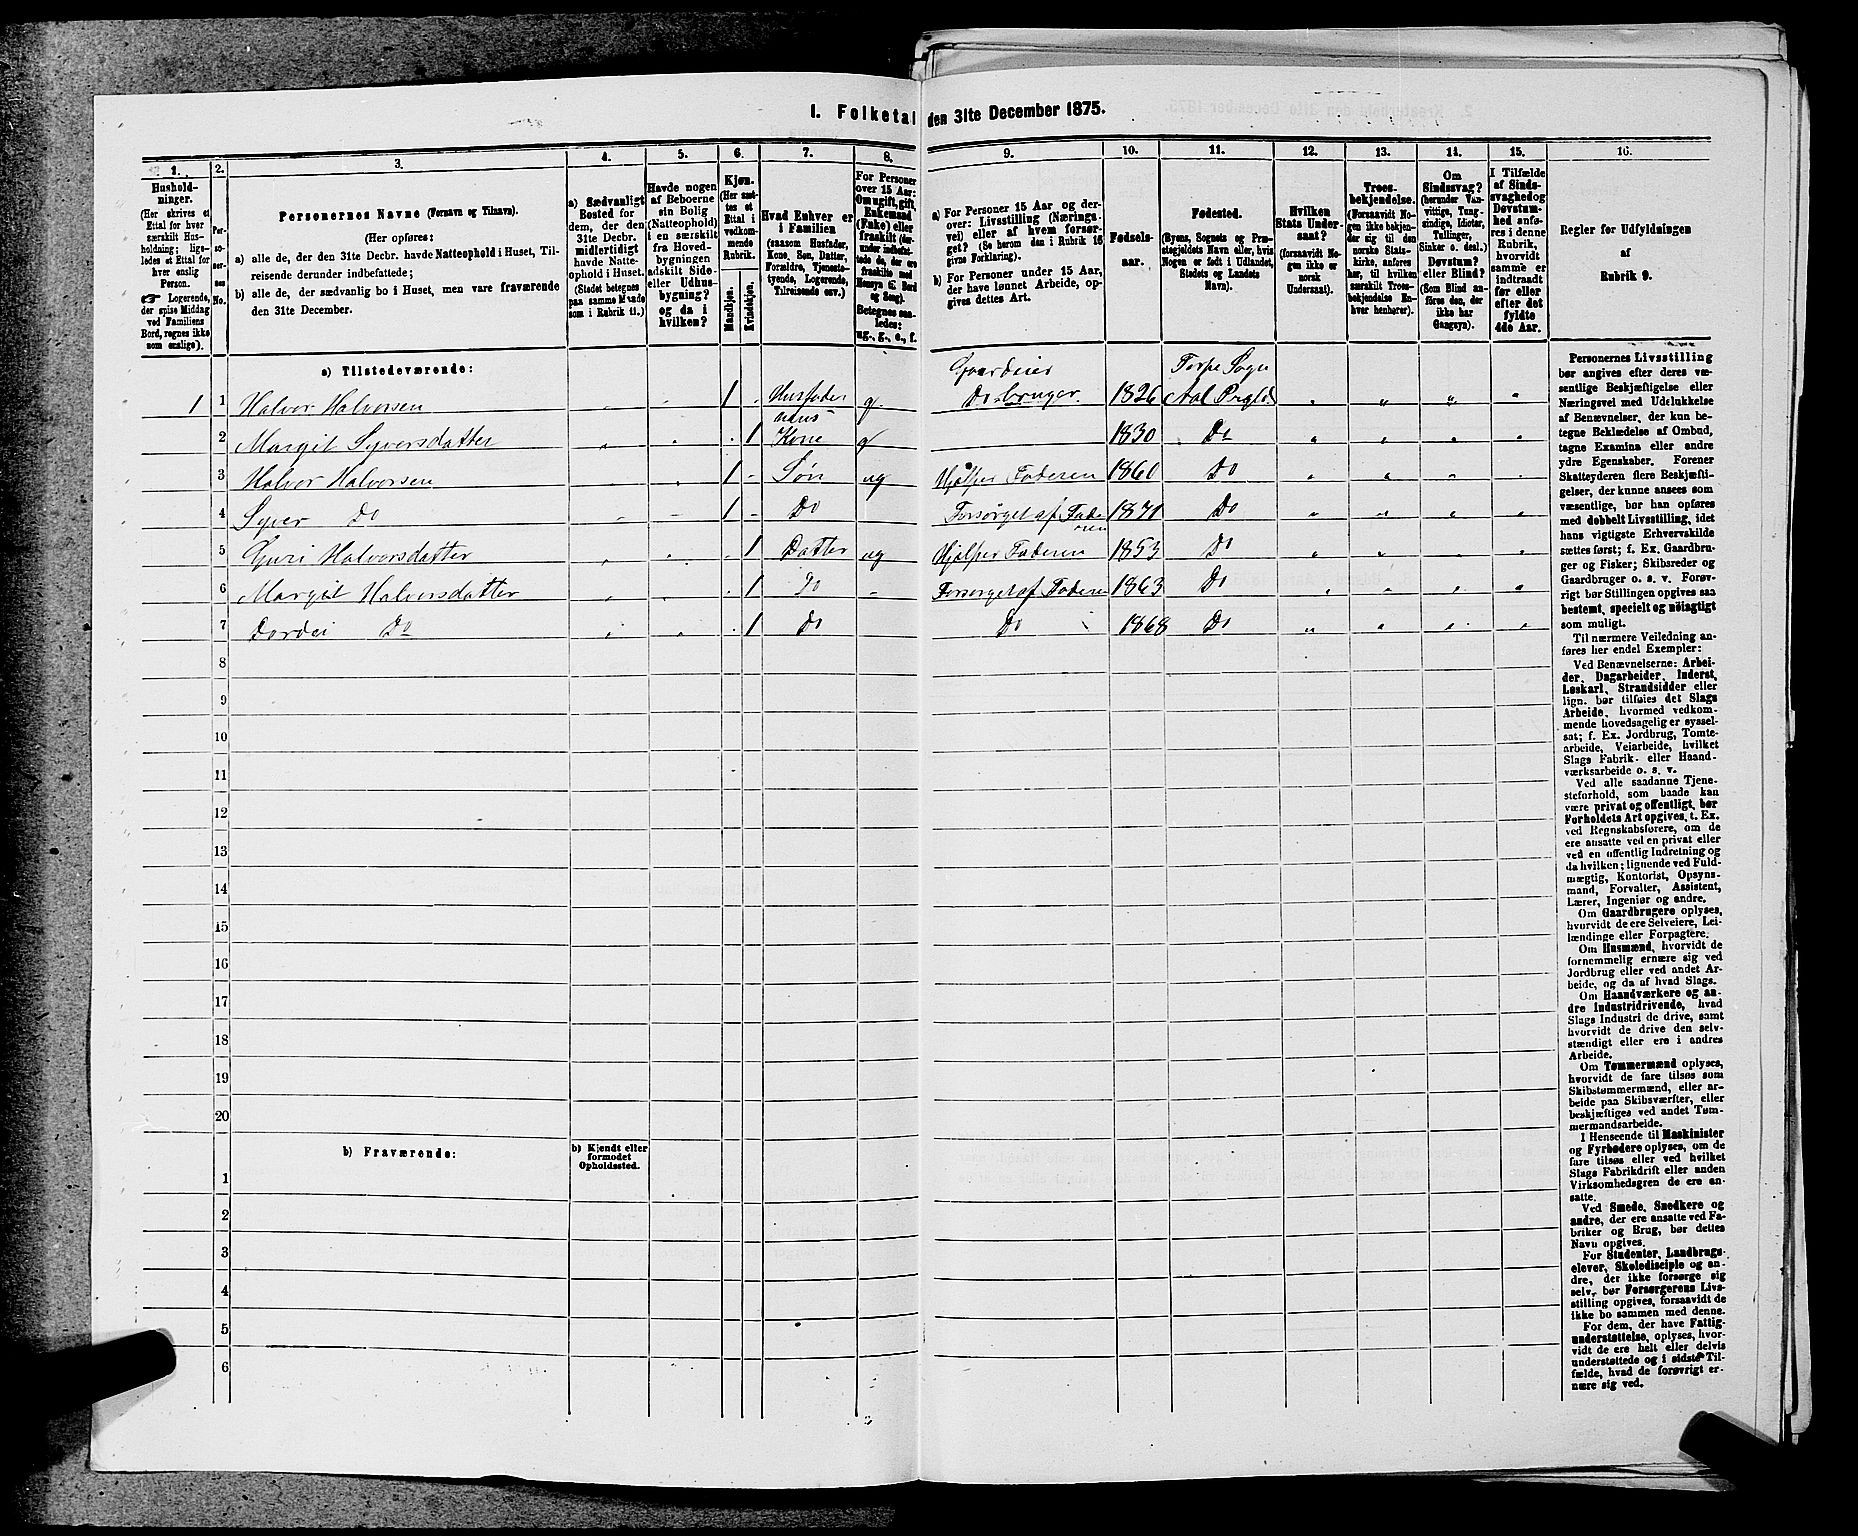 I. Folketal den 31te December 1875.
1.
Hushold-
ninger.
(Her skrives et
Ettal for hver
særskilt Hus-
holdning; lige-
ledes et Ettal for
hver enslig
Person.
Logerende,
der spise Middag
ved Familiens
Bord, regnes ikke
som enslige).
2.
Per-
so-
ner-
nes
No.
3.
Personernes Navne (Fornavn og Tilnavn).
(Her opføres:
a) alle de, der den 31te Decbr. havde Natteophold i Huset, Til-
reisende derunder indbefattede;
b) alle de, der sædvanlig bo i Huset, men vare fraværende
den 31te December.
4.
a) Sædvanligt
Bosted for
dem, der den
31te Decbr.
midlertidigt
havde Natte-
ophold i Huset.
(Stedet betegnes
paa samme Maade
som i Rubrik 11.)
5.
Havde nogen
af Beboerne
sin Bolig
(Natteophold)
i en særskilt
fra Hoved-
bygningen
adskilt Side-
eller Udhus-
bygning?
og da i
hvilken?
6.
Kjøn.
(Her sæt-
tes et
Ettal i
vedkom-
mende
Rubrik.
Mandkjøn.
Kvindekjøn.
7.
Hvad Enhver er
i Familien
(saasom Husfader,
Kone, Søn, Datter,
Forældre, Tjeneste-
tyende, Logerende,
Tilreisende osv.)
8.
For Personer
over 15 Aar:
Om ugift, gift,
Enkemand
(Enke) eller
fraskilt
Betegnes saa-
ledes:
ug., g., e., f.
9.
a) For Personer 15 Aar og der-
over: Livsstilling (Nærings-
vei) eller af hvem forsør-
get? (Se herom den i Rubrik 16
givne Forklaring).
b) For Personer under 15 Aar,
der have lønnet Arbeide, op-
gives dettes Art.
10.
Fødsels-
aar.
11.
Fødested.
(Byens, Sognets og Præ-
stegjeldets Navn eller, hvis
Nogen er født i Udlandet,
Stedets og Landets
Navn).
12.
Hvilken
Stats Under-
saat?
(forsaavidt No-
gen ikke er
norsk
Undersaat).
13.
Troes-
bekjendelse.
(Forsaavidt No-
gen ikke bekjen-
der sig til den
norske Stats-
kirke, anføres
her, til hvilken
særskilt Troes-
bekjendelse En-
hver henhører).
14.
Om
Sindssvag?
(herunder Van-
vittige, Tung-
sindige, Idioter,
Tullinger,
Sinker o. desl.)
Døvstum?
eller Blind?
(Som Blind an-
føres den, der
ikke har
Gangsyn).
15.
I Tilfælde
af Sinds-
svaghed og
Døvstum-
hed anfø-
res i denne
Rubrik,
hvorvidt
samme er
indtraadt
før eller
efter det
fyldte
4de Aar.
16.
Regler for Udfyldningen
af
Rubrik 9.
a) Tilstedeværende:
Gaardeier Torpe Sogn
1 1 Halvor Halvorsen 1 Husfader g. Do bruger. 1826 Aal Prgld
2 Margit Syversdatter 1 Kone g 1830 Do
3 Halvor Halvorsen 1 Søn ug Hjælper Faderen 1860 Do
4 Syver Do 1 Do Forsørget af Faderen 1871 Do
5 Guri Halvorsdatter 1 Datter ug Hjælper Faderen 1853 Do
6 Margit Halvorsdatter 1 Do Forsørget af Faderen 1863 Do
7 Dordei Do 1 Do Do 1868 Do
8
9
10
11
12
13
14
15
16
17
18
19
20
b) Fraværende:
b) Kjendt eller
formodet
Opholdssted.
1
2
3
4
5
6
Personernes Livsstilling
bør angives efter deres væ-
sentlige Beskjæftigelse eller
Næringsvei med Udelukkelse
af Benævnelser, der kun be-
tegne Beklædelse af Ombud,
tagne Examina eller andre
ydre Egenskaber. Forener
Skatteyderen flere Beskjæfti-
gelser, der kunne ansees som
væsentlige, bør han opføres
med dobbelt Livsstilling, idet
hans vigtigste Erhvervskilde
sættes først; f. Ex. Gaardbru-
ger og Fisker; Skibsreder og
Gaardbruger o. s. v. Forøv-
rigt bør Stillingen opgives saa
bestemt, specielt og nöiagtigt
som muligt.
Til nærmere Veiledning an-
føres her endel Exempler:
Ved Benævnelserne: Arbei-
der, Dagarbeider, Inderst,
Løskarl, Strandsidder eller
lign. bør tilføies det Slags
Arbeide, hvormed vedkom-
mende hovedsagelig er syssel-
sat; f. Ex. Jordbrug, Tomte-
arbeide, Veiarbeide, hvilket
Slags Fabrik- eller Haand-
værksarbeide o. s. v.
Ved alle saadanne Tjene-
steforhold, som baade kan
være privat og offentligt, bør
Forholdets Art opgives, t. Ex.
ved Regnskabsførere, om de
ere ansatte ved en privat eller
ved en offentlig Indretning og
da hvilken; lignende ved Fuld-
mægtig, Kontorist, Opsyns-
mand, Forvalter, Assistent,
Lærer, Ingeniør og andre.
Om Gaardbrugere oplyses,
hvorvidt de ere Selveiere, Lei-
lændinge eller Forpagtere.
Om Husmænd, hvorvidt de
fornemmelig ernære sig ved
Jordbrug eller ved andet Ar-
beide, og da af hvad Slags.
Om Haandværkere og an-
dre Industridrivende, hvad
Slags Industri de drive, samt
hvorvidt de drive den selv-
stændigt eller ere i andres
Arbeide.
Om Tømmermænd oplyses,
hvorvidt de fare tilsøs som
Skibstømmermænd, eller ar-
beide paa Skibsværfter, eller
beskjæftiges ved andet Tøm-
mermandsarbeide.
I Henseende til Maskinister
og Fyrbødere oplyses, om de
fare tilsøs eller ved hvilket
Slags Fabrikdrift eller anden
Virksomhedsgren de ere an-
satte.
Ved Smede, Snedkere og
andre, der ere ansatte ved Fa-
briker og Brug, bør dettes
Navn opgives.
For Studenter, Landbrugs-
elever, Skoledisciple og an-
dre, der ikke forsørge sig
selv, bør Forsørgerens Livs-
stilling opgives, forsaavidt de
ikke bo sammen med denne.
For dem, der have Fattig-
understøttelse, oplyses, hvor-
vidt de ere helt eller delvis
understøttede og i sidste Til-
fælde, hvad de forøvrigt er-
nære sig ved.